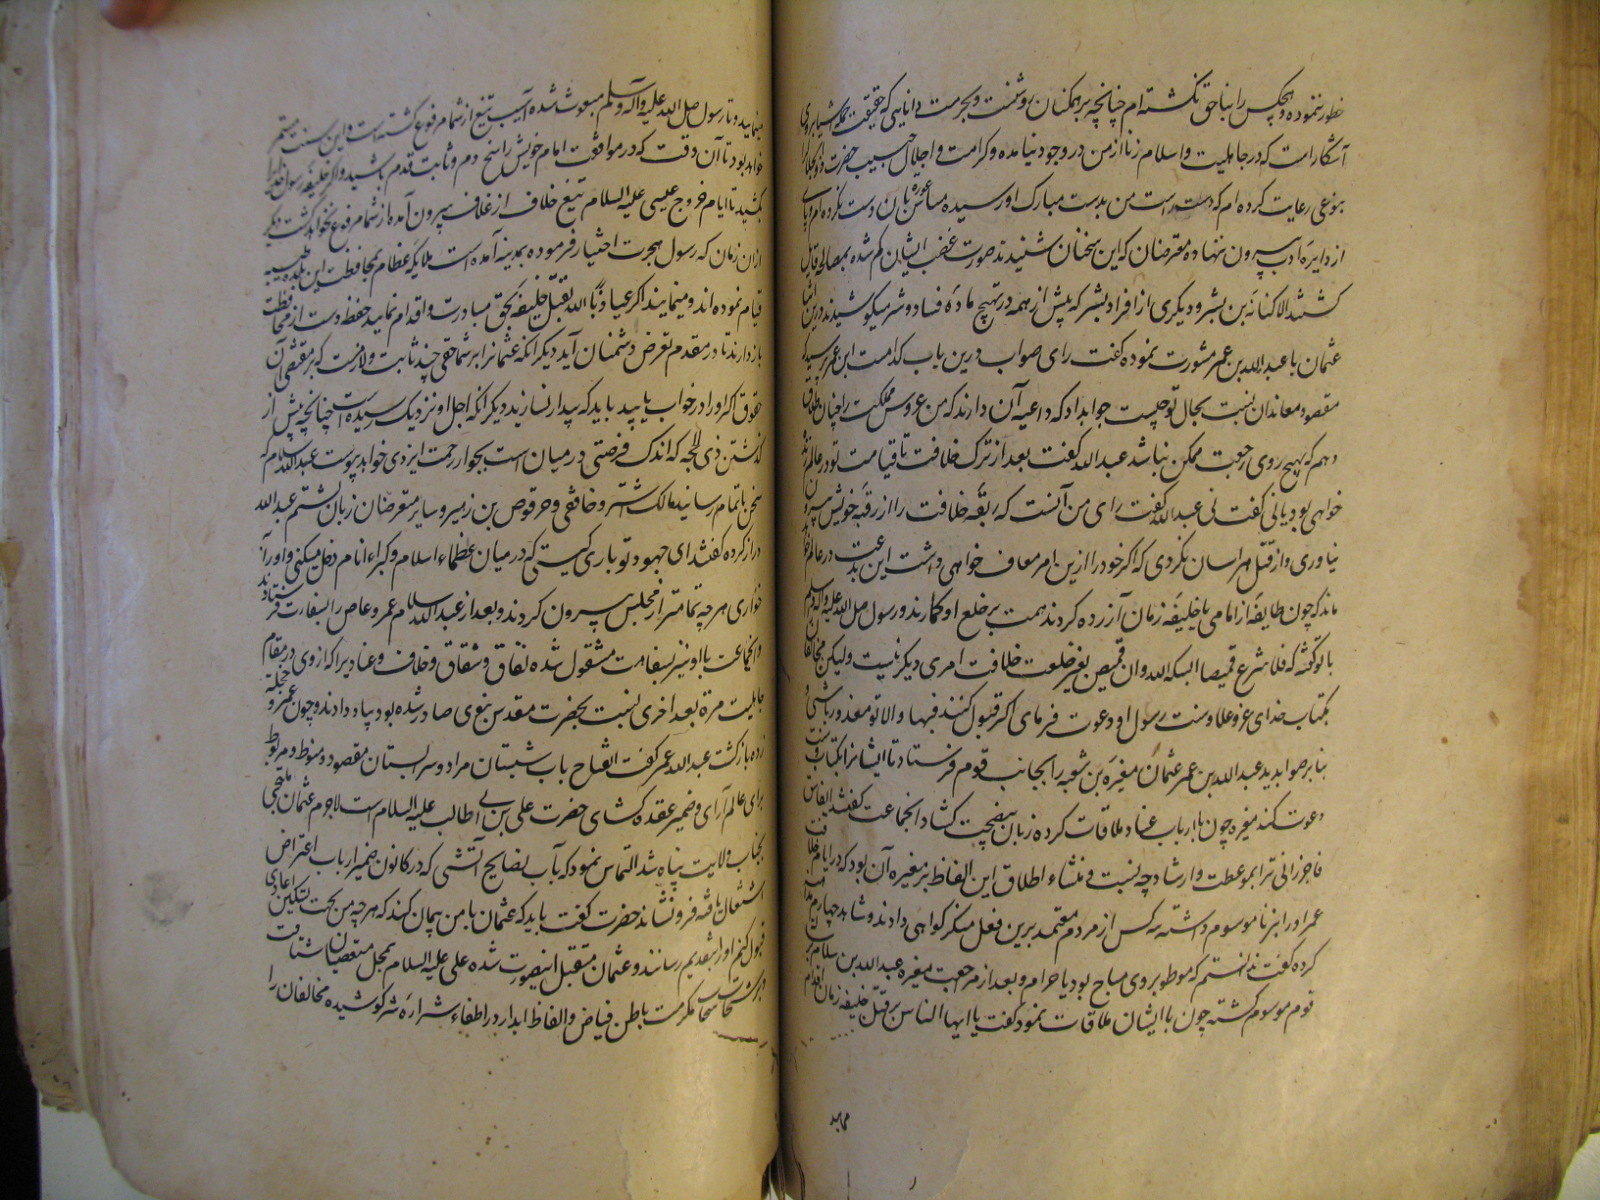 خطور ننموده و هیچکس را بناحق نکشته ام چنانچه بر همکنان روشنست و بحرمت دانایی که حقیقت جمله اشیا بروی
آشکار است که در جاهلیت و اسلام زنا از من در وجود نیامده و کرامت و اجلال حبیب حضرت ذو الجلال را
بنوعی رعایت کرده ام که دست راست من بدست مبارک او رسیده مس عورت بآن دست نکرده ام و پای
از دایره ادب بیرون ننهاده معترضان که این سخنان شنیدند صورت غضب ایشان کم شده بمصالحه قایل
کشتند الا کنانه بن بشر و دیکری از افراد بشر که پیش از همه در تهییج ماده فساد و شر میکوشیدند درین اثنا
عثمان با عبد الله بن عمر مشورت نموده کفت رای صواب درین باب کدامست ابن عمر پرسید که
مقصود معاندان نسبت بحال تو چیست جواب داد که داعیه آن دارند که من عروس مملکت را چنان طلاق
دهم که بهیچ روی رجعت ممکن نباشد عبد الله کفت بعد از ترک خلافت تا قیامت تو در عالم
خواهی بود یا نی کفت نی عبد الله کفت رای من آنست که ربقه خلافت را از رقبه خویش بیرون
نیاوری و از قتل هراسان نکردی که اکر خود را ازین امر معاف خواهی داشت این بدعت در عالم
ماند که چون طایفه از امامی یا خلیفه زمان آزرده کردند همت بر خلع او کمارند و رسول صلی الله علیه و آله وسلم
با تو کفته که فلا تنزع قمیصا البسکه الله و آن قمیص بغیر خلعت خلافت امری دیکر نیست ولیکن مخالفان را
بکتاب خدای عز و علا و سنت رسول او دعوت فرمای اکر قبول کنند فبها و الا تو معذور باشی و
بنابر صوابدید عبد الله بن عمر عثمان مغیره بن شعبه را بجانب قوم فرستاد تا ایشانرا بکتاب و سنت
دعوت کند مغیره چون با ارباب عناد ملاقات کرده زبان بنصیحت کشاد آنجماعت کفتند ای فاسق
فاجر زانی ترا بموعظت و ارشاد چه نسبت و منشاء اطلاق این الفاظ بر مغیره آن بود که در ایام خلافت
عمر او را بزنا موسوم داشته سه کس از مردم معتمد برین فعل منکر کواهی دادند و شاهد چهارم
کرده کفت ندانستم که موطو بر وی مباح بود یا حرام و بعد از مراجعت مغیره عبد الله بن سلام بر
قوم موسوم کشته چون با ایشان ملاقات نمود کفت یا ایها الناس بر قتل خلیفه زمان اقدام
ممایید
مینمایید و تا رسول صلی الله علیه و آله وسلم مبعوث شده آسیب تیغ از شما مرفوع کشته است و این سنت مستمر
خواهد بود تا آن وقت که در موافقت امام خویش راسخ دم و ثابت قدم باشید و اکر خلیفه رسول خدا را
بکشید تا ایام خروج عیسی علیه السلام تیغ خلاف از غلاف بیرون آمده از شما مرفوع نخواهد کشت دیکر
از آن زمان که رسول هجرت اختیار فرموده بمدینه آمده است ملایکه عظام بمحافظت این بلده طیبه
قیام نموده اند و مینمایند اکر عیاذ بالله بقتل خلیفه بحق مبادرت و اقدام نمایید حفظه دست از محافظت
باز دارند تا در مقدم تعرض دشمنان آید دیکر آنکه عثمانرا بر شما حقی چند ثابت و لازمست که بر مقتضی آن
حقوق اکر او را در خواب یابید باید که بیدار نسازید دیکر آنکه اجل او نزدیک رسیده است چنانچه پیش از
کذشتن ذی الحجه که اندک فرصتی در میان است بجوار رحمت ایزدی خواهد پیوست عبد الله سلام که
سخن باتمام رسانید مالک اشتر و خافقی و حرقوص بن زهیر و سایر معترضان زبان بشتم عبد الله
دراز کرده کفتند ای جهود تو باری کیستی که در میان عظماء اسلام و کبراء انام دخل میکنی و او را
خواری هر چه تمامتر از مجلس بیرون کردند و بعد از عبد الله سلام عمرو عاص را بسفارت فرستادند
و آنجماعت با او نیز بسفاهت مشغول شده نفاق و شقاق و خلاف و عناد ویرا که از وی در مقام
جاهلیت مرة بعد اخری نسبت بحضرت مقدس نبوی صادر شده بود بیاد دادند و چون عمرو خجلت
زده باز کشت عبد الله عمر کفت انفتاح باب شبستان مراد و سر بستان مقصود منوط و مربوط
برای عالم آرای و ضمیر عقده کشای حضرت علی بن ابی طالب علیه السلام است لاجرم عثمان ملتجی
بجناب ولایت پناه شد التماس نمود که بآب نصایح آتشی که در کانون ضمیر ارباب اعتراض
اشتعال یافته فرو نشاند حضرت کفت باید که عثمان با من پیمان کند که هر چه من بجهت تسکین اعادی
قبول کنم او را بتقدیم رسانند و عثمان متقبل اینصورت شده علی علیه السلام بمجلس متعصبان شتافت
و برشحات سحاب مکرمت باطن فیاض و الفاظ ابدار در اطفاء شراره شر کوشیده مخالفان را